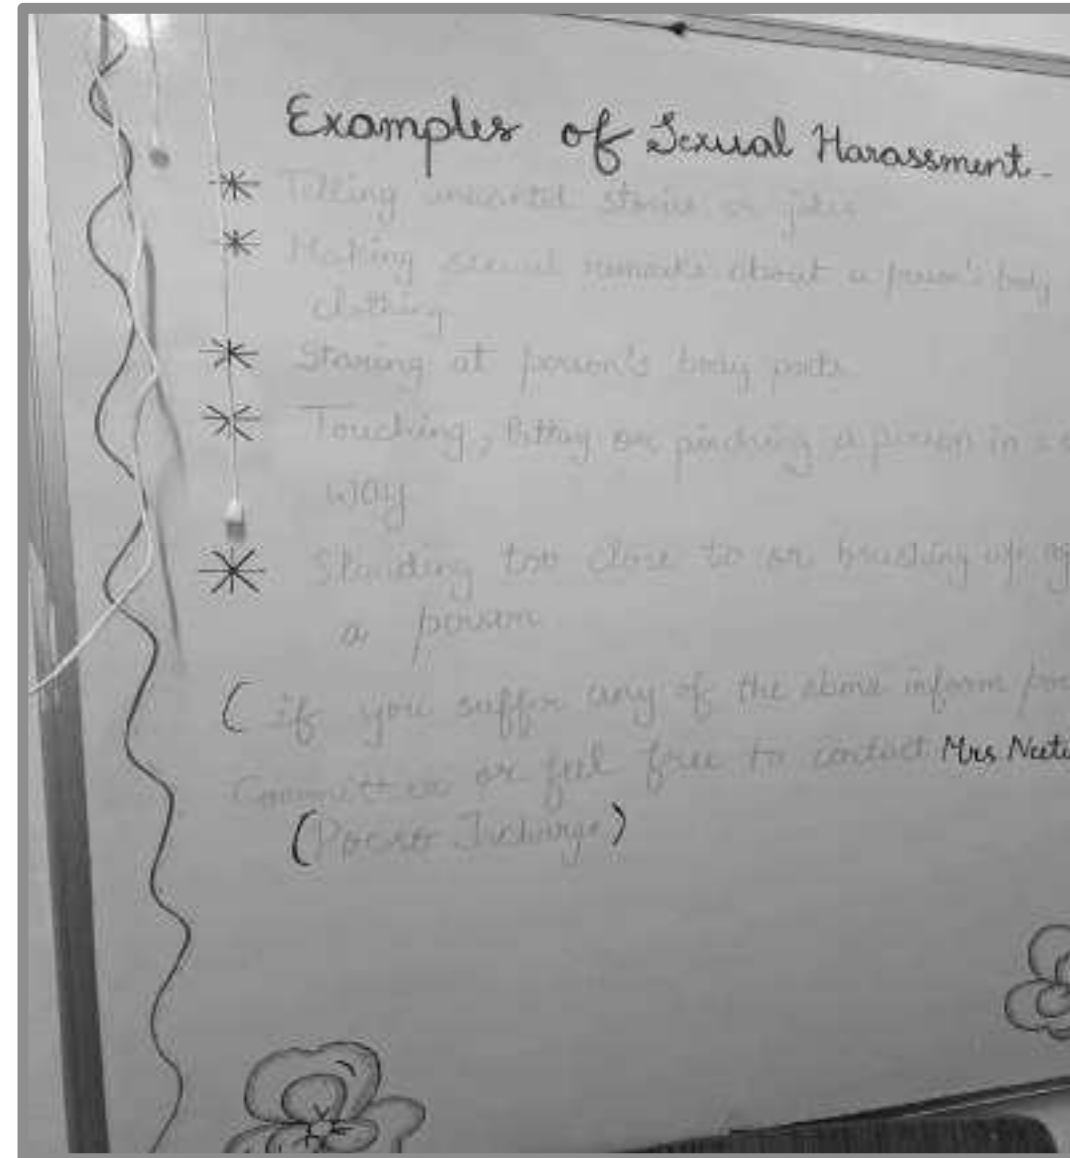 Examples of Sexual Harassment.
Telling unwanted stories or jokes
Making sexual remarks about a person's body
clothing
Staring at person's body parts
Touching, Pitting or pinching a person in
way
Standing too close to or brushing up
a person.
( if you suffer any of the above inform
Committee or feel free to contact Mrs
(Pocso Incharge)